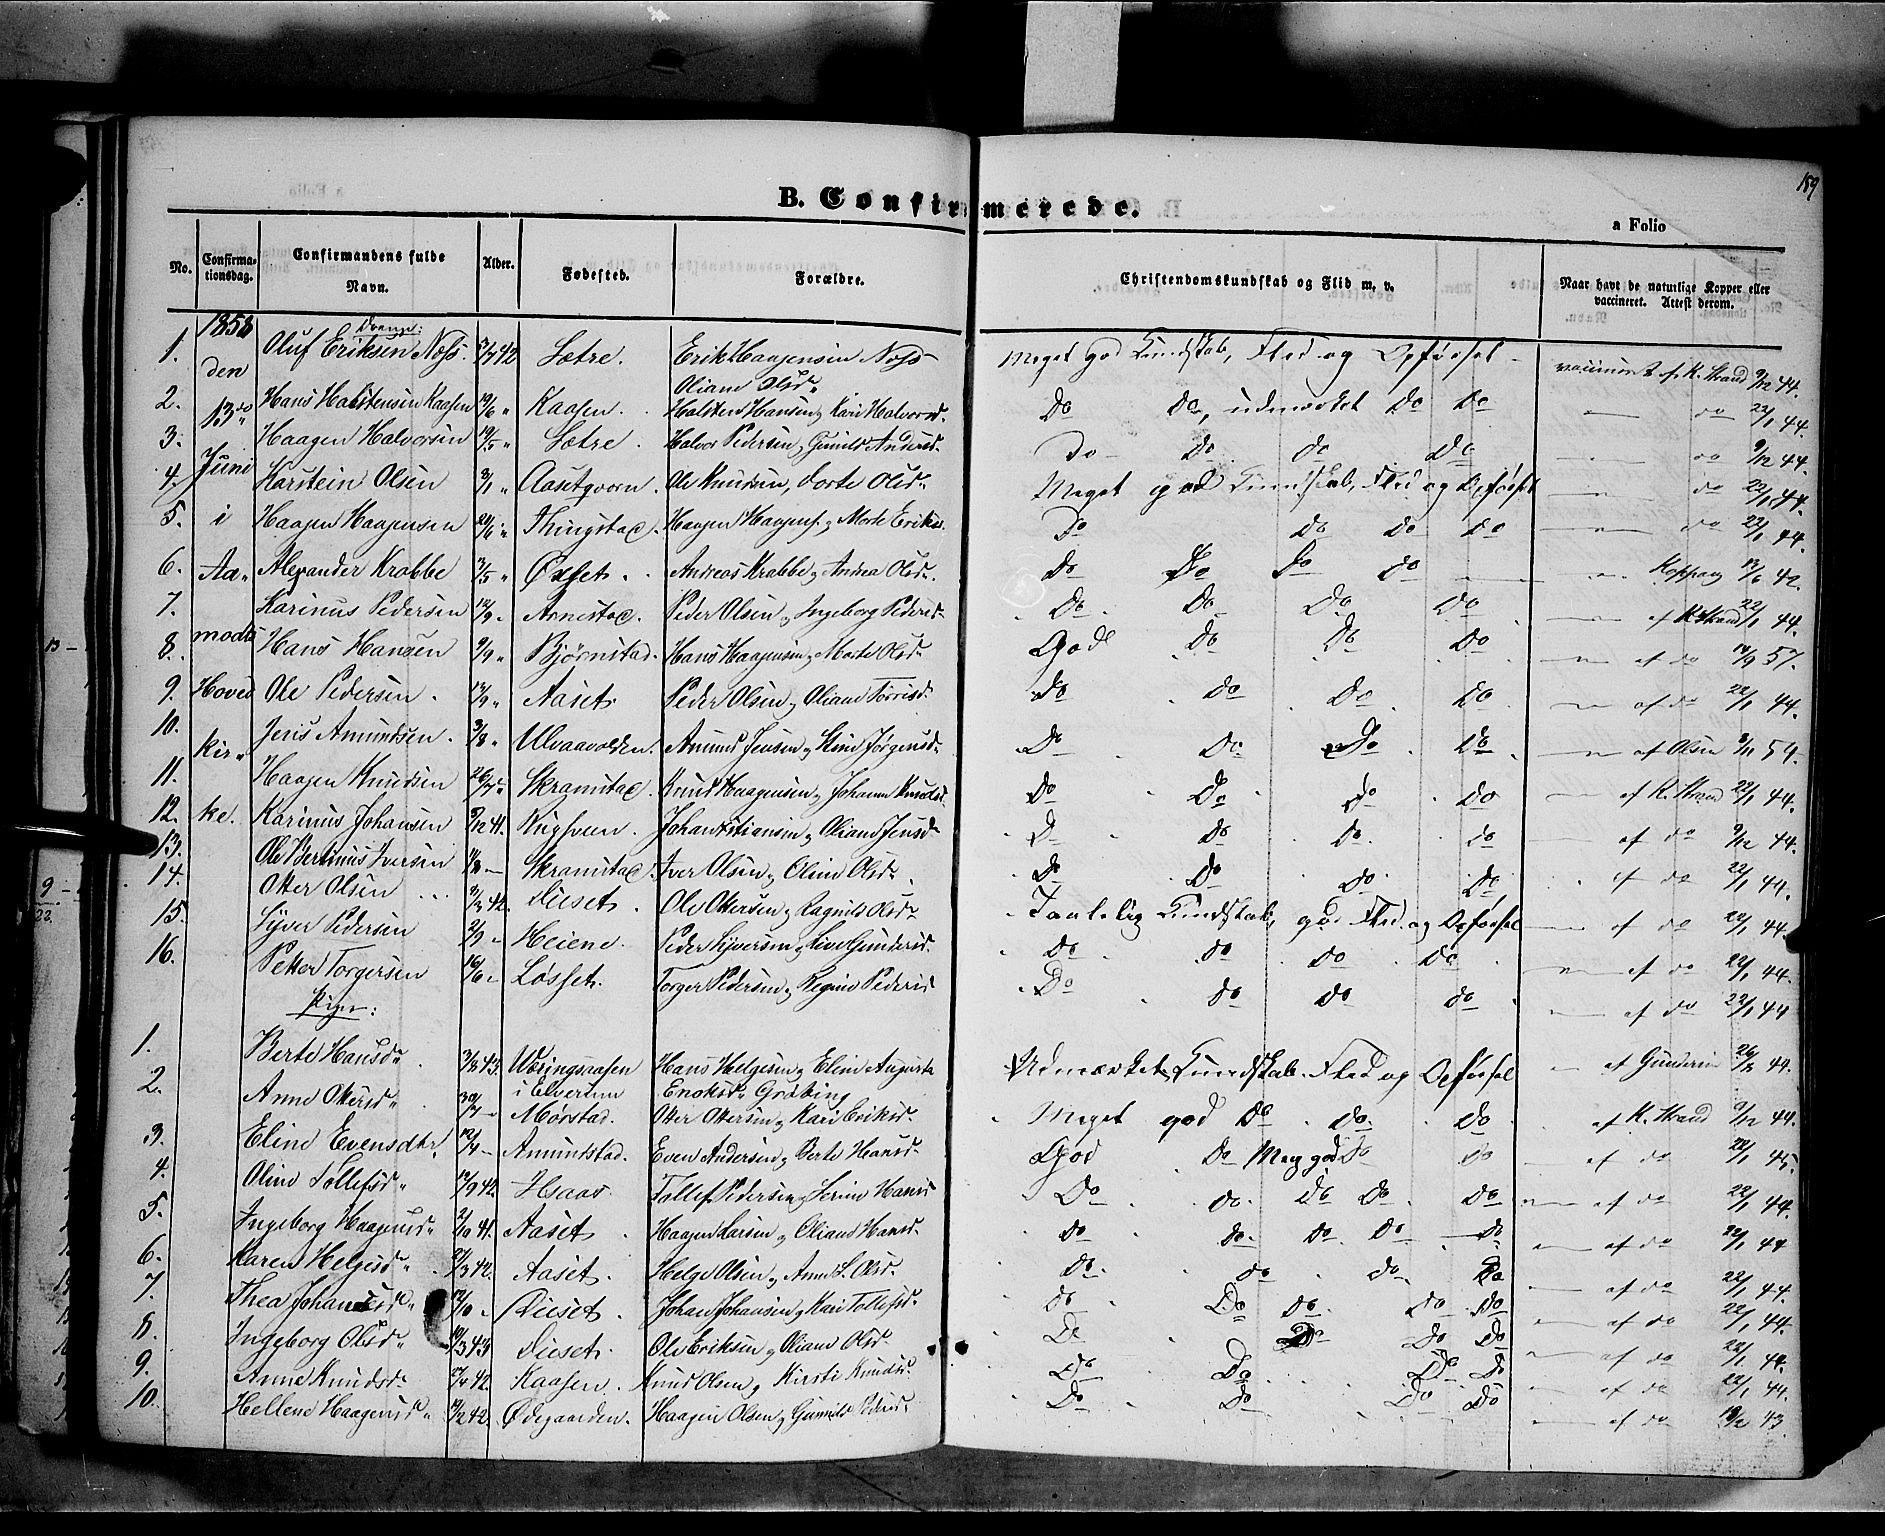 189
B. Confirmerede.
a Folio
No. Confirmationsdag. Confirmandens fulde Navn. Alder. Fødested. Forældre. Christendomskundskab og Flid m. v. Naar havt de naturlige Kopper eller vaccineret. Attest derom.
1858 den 13de Juni i Aamodts Hovedkirke.
Drenge:
1. Oluf Eriksen Næss 42 Sætre. Erik Haagensen Næss Oliane Olsdr Meget god Kundskab, Flid og Opførsel vaccineret af K. Strand 9/12 44.
2. Hans Halstensen Kaasen 19/6 " Kaasen. Halsten Hansen, Kari Halvorsd. Do Do, udmærket Do Do do 22/1 44.
3. Haagen Halvorsen 19/5 " Sætre. Halvor Pedersen, Gunild Andersd. Do Do do Do do 9/12 44.
4. Karstein Olsen 3/1 " Aasetqværn. Ole Knudsen, Dorte Olsd. Meget god Kundskab, Flid og Opførsel do 22/1 44.
5. Haagen Haagensen 20/6 " Thingstad. Haagen Haagens. Marte Eriksd. Do do do do do 22/1 44.
6. Alexander Krabbe 3/5 " Øxset. Andreas Krabbe, Andrea Olsd. Do Do Do do Koppang 13/6 42
7. Karinus Pedersen 12/9 Arnestad. Peder Olsen, Ingeborg Pedersd. Do Do Do Do af K. Strand 22/1 44.
8. Hans Hansen 9/9 " Bjørnstad. Hans Haagensen, Marte Olsd. God Do Do Do af do 14/9 57.
9. Ole Pedersen. 13/9 " Aaset. Peder Olsen, Oliane Torrisd. Do Do Do Do af do 22/1 44.
10. Jens Amundsen. 3/8 " Ulvaavolden. Amund Jensen, Stine Jørgensd. Do Do Do Do af Olsen 8/11 54.
11. Haagen Knudsen 26/7 " Skramstad. Knud Haagensen, Johanne Knudsd. Do Do do do af K. Strand 22/1 44.
12. Karinus Johansen 9/12 41. Rugsveen. Johan Kristiansen, Oliane Jensd. D Do do do af do 9/12 44.
13. Ole Bertinus Iversen Skramstad. Iver Olsen, Oline Olsd. Do Do Do Do af do 22/1 44.
14. Otter Olsen 42. Diset. Ole Ottersen, Ragnild Olsd. Taalelig Kundskab, god Flid og Opførsel af do 22/1 44.
15. Syver Pedersen 2/9 Heiene. Peder Syversen, Live Gundersd. Do do do do af do 22/1 44.
16. Petter Torgersen 16/6 Løsset. Torger Pedersen, Regine Pedersd Do do do do af do 22/1 44
Piger:
1. Berte Hansd. 3/8 43. Væringsaasen i Elverum Hans Helgesen, Eline Auguste Enoksd. Grøtting Udmærket Kundskab Flid og Opførsel af Gundersen 26/8 44.
2. Anne Ottersd. 30/7 Mørstad. Otter Ottersen, Kari Eriksd. Meget god Do do do af K. Strand 9/12 44.
3. Eline Evensdtr. 12/4 Amundstad. Even Andersen, Berte Hansd. God Do Meg. god Do do af do 22/1 45.
4. Oline Tollefsd. 12/9 42. Tollef Pedersen, Serine Hansd Do do. Do Do Do af do 22/1 44.
5. Ingeborg Haagensd. 2/10 41. Aaset. Haagen Larsen, Oliane Hansd. do do. Do Do do af do 22/1 44
6. Karen Helgesd. 21/3 42. Aaset. Helge Olsen, Anne S. Olsd. do. do do. Do af do 22/1 44.
7. Thea Johansd. 12/10 Diset. Johan Johansen, Kari Tollefsd. do Do do Do Do af do 22/1 44.
8. Ingeborg Olsd. 10/3 43 Diset. Ole Eriksen, Oliane Olsd. Do Do Do Do af do 22/1 44.
9. Anne Knudsd. 42. Kaasen. Knud Olsen, Kirsti Knudsd. Do Do Do Do af do 22/1 44.
10. Hellene Haagensd. 19/2 42. Ødegaarden. Haagen Olsen, Gunild Pedersd. Do Do Do Do af do 13/2 43.